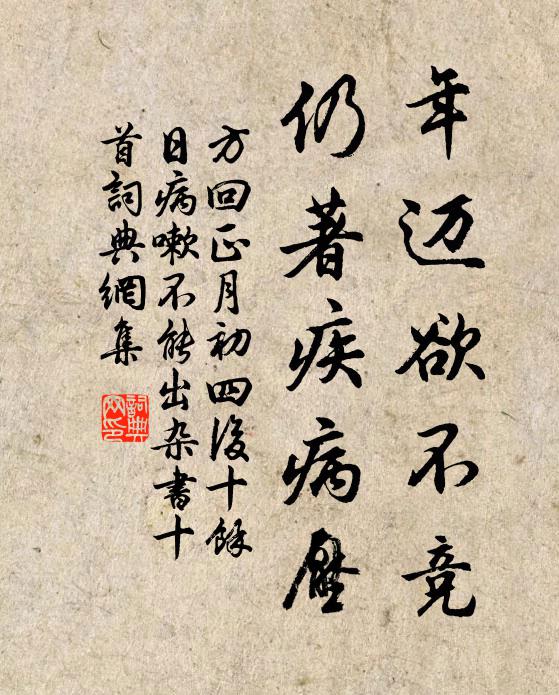 年迈欲不竞
仍著疾病壓
方回正月初四後十餘
日病嗽不能出杂書十
首詞典網集
詞典
网印